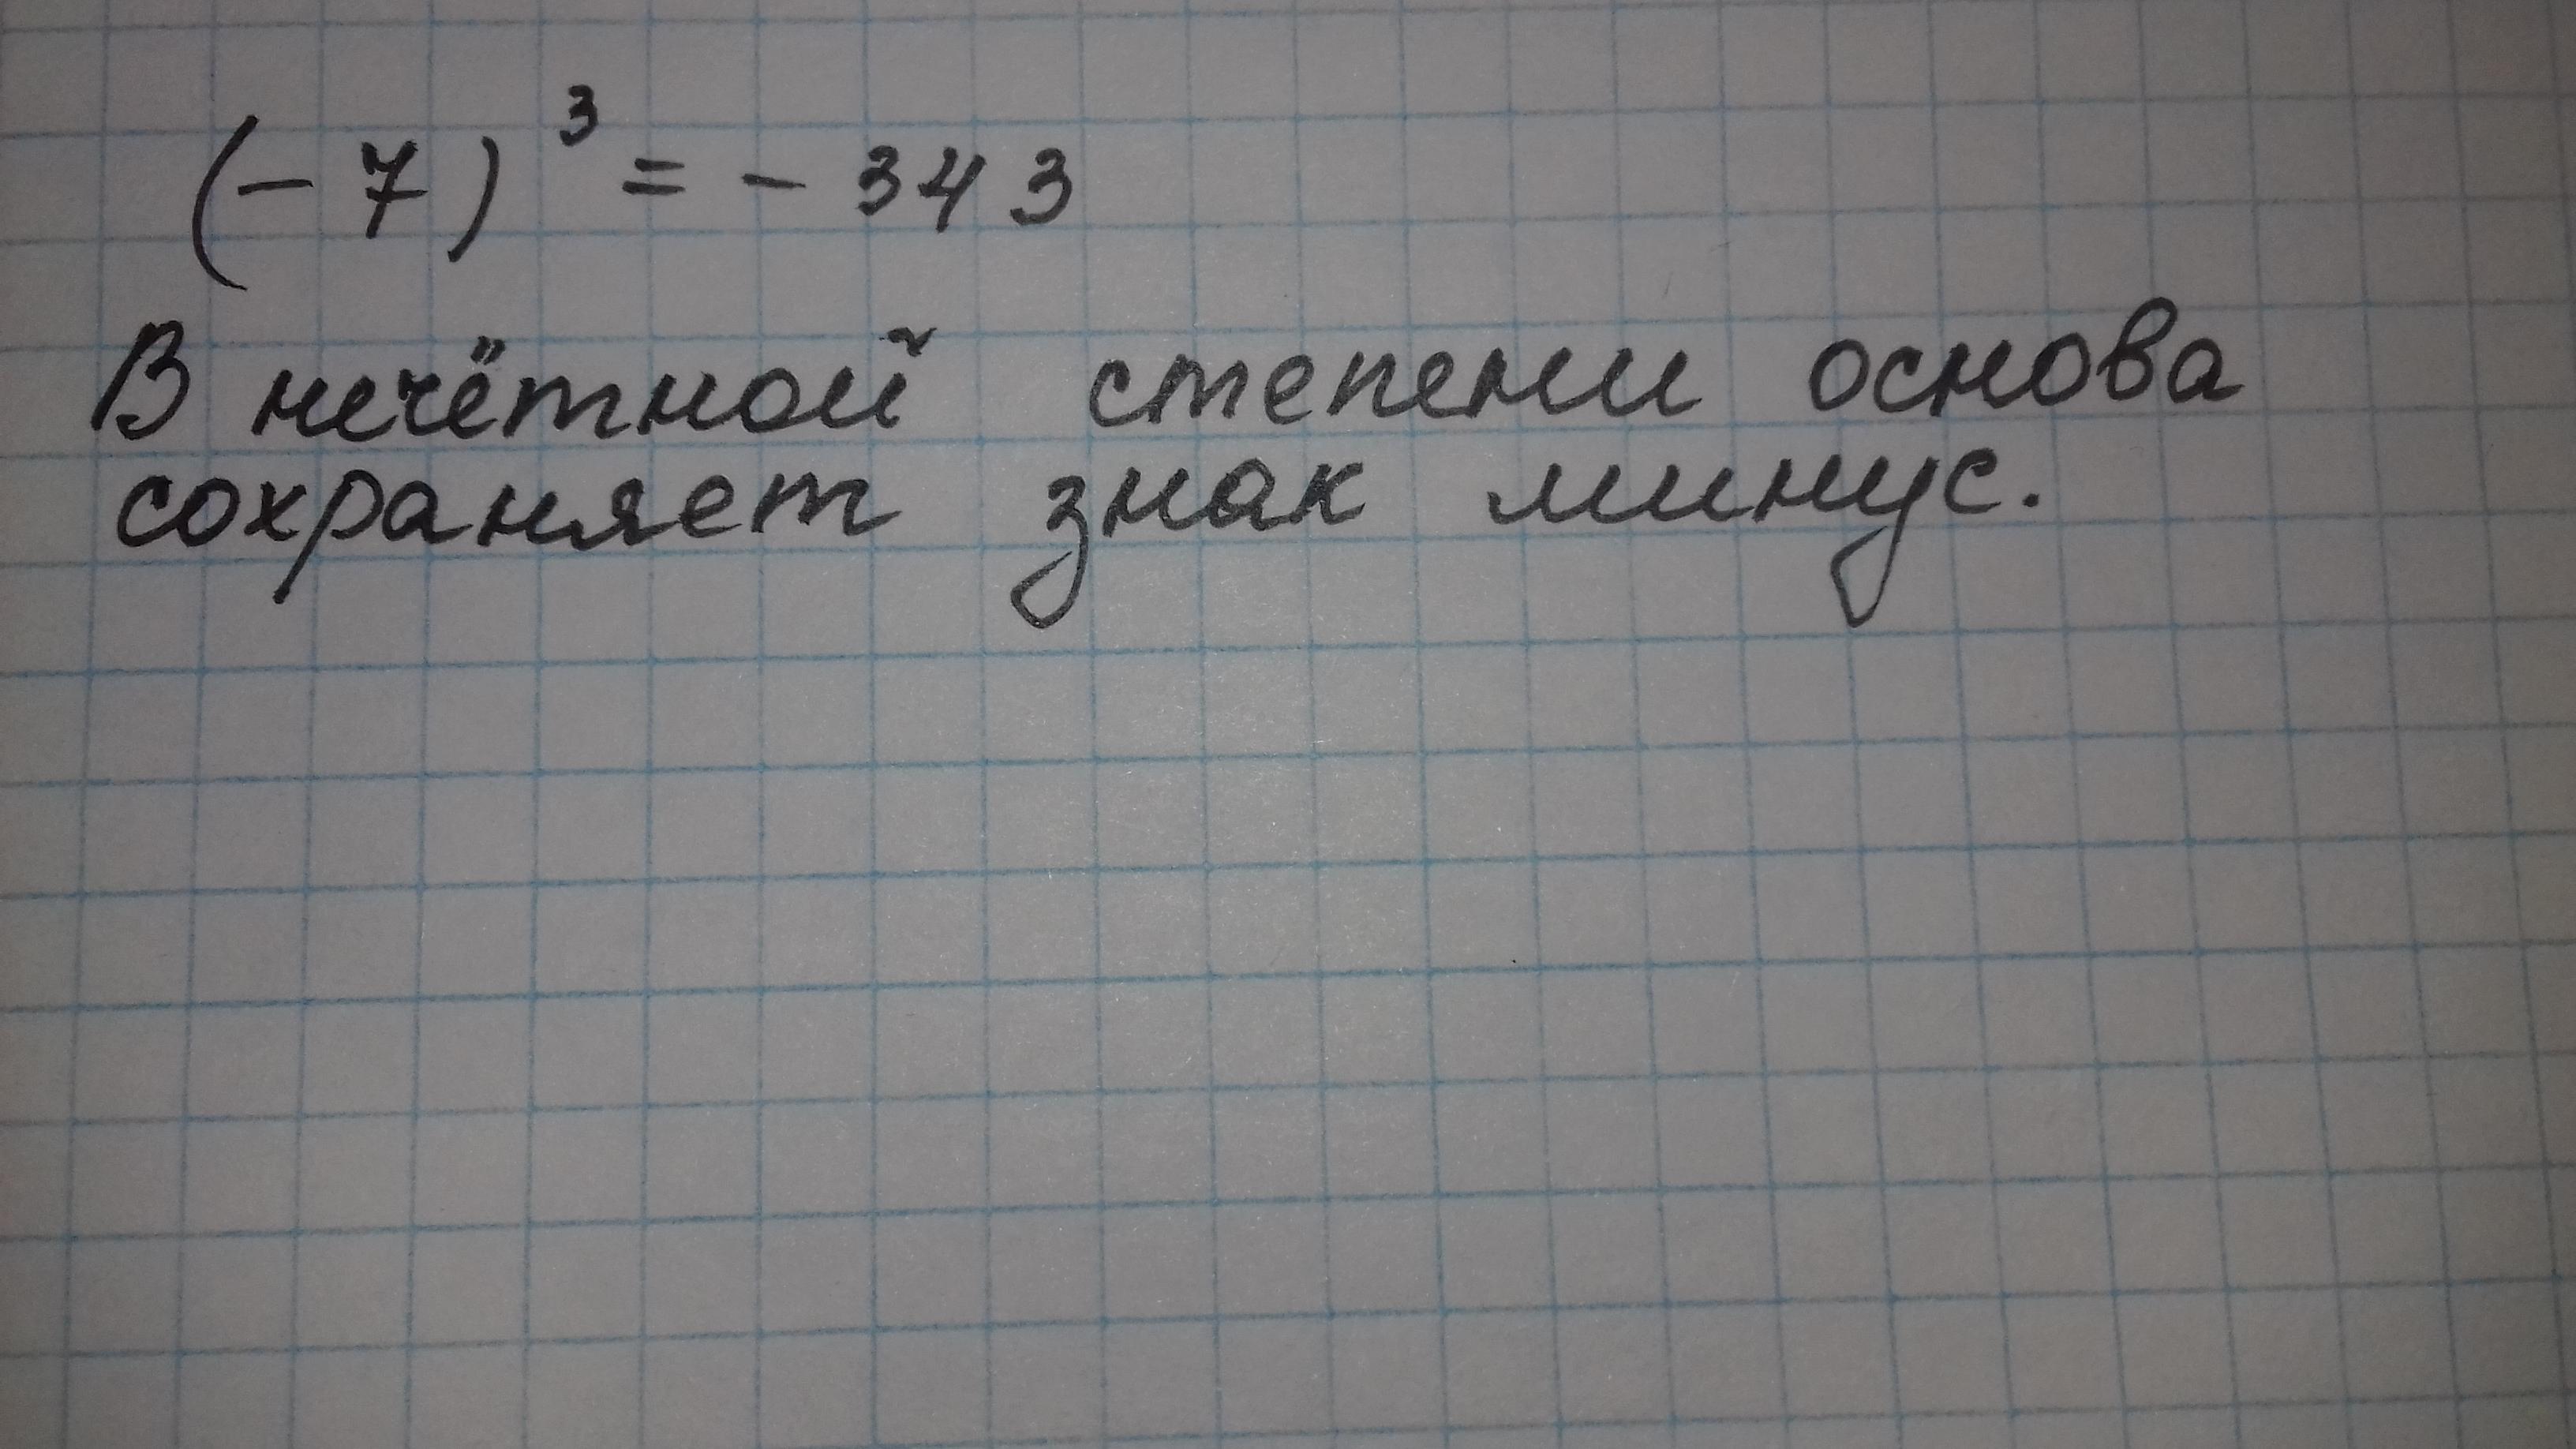 (-7)³ = - 343
В нечётной степени основа
сохраняет знак минус.